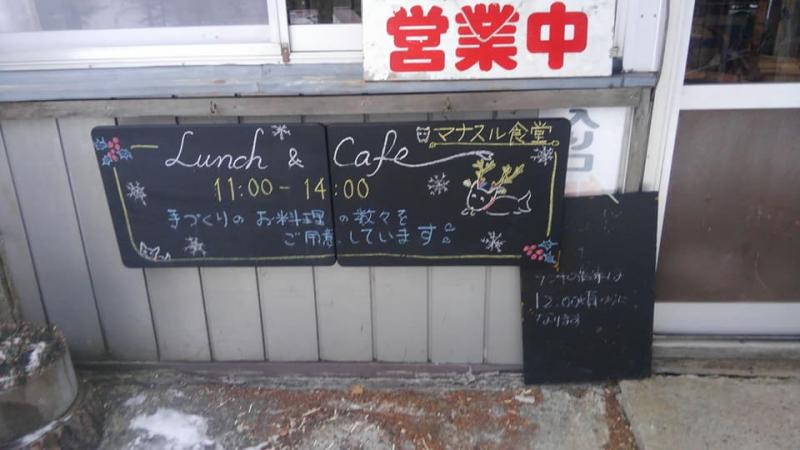 営業中
Lunch & Cafe
マナスル食堂
11:00-14:00
手づくりの お料理の数々を
ご用意しています。
12:00頃
なります